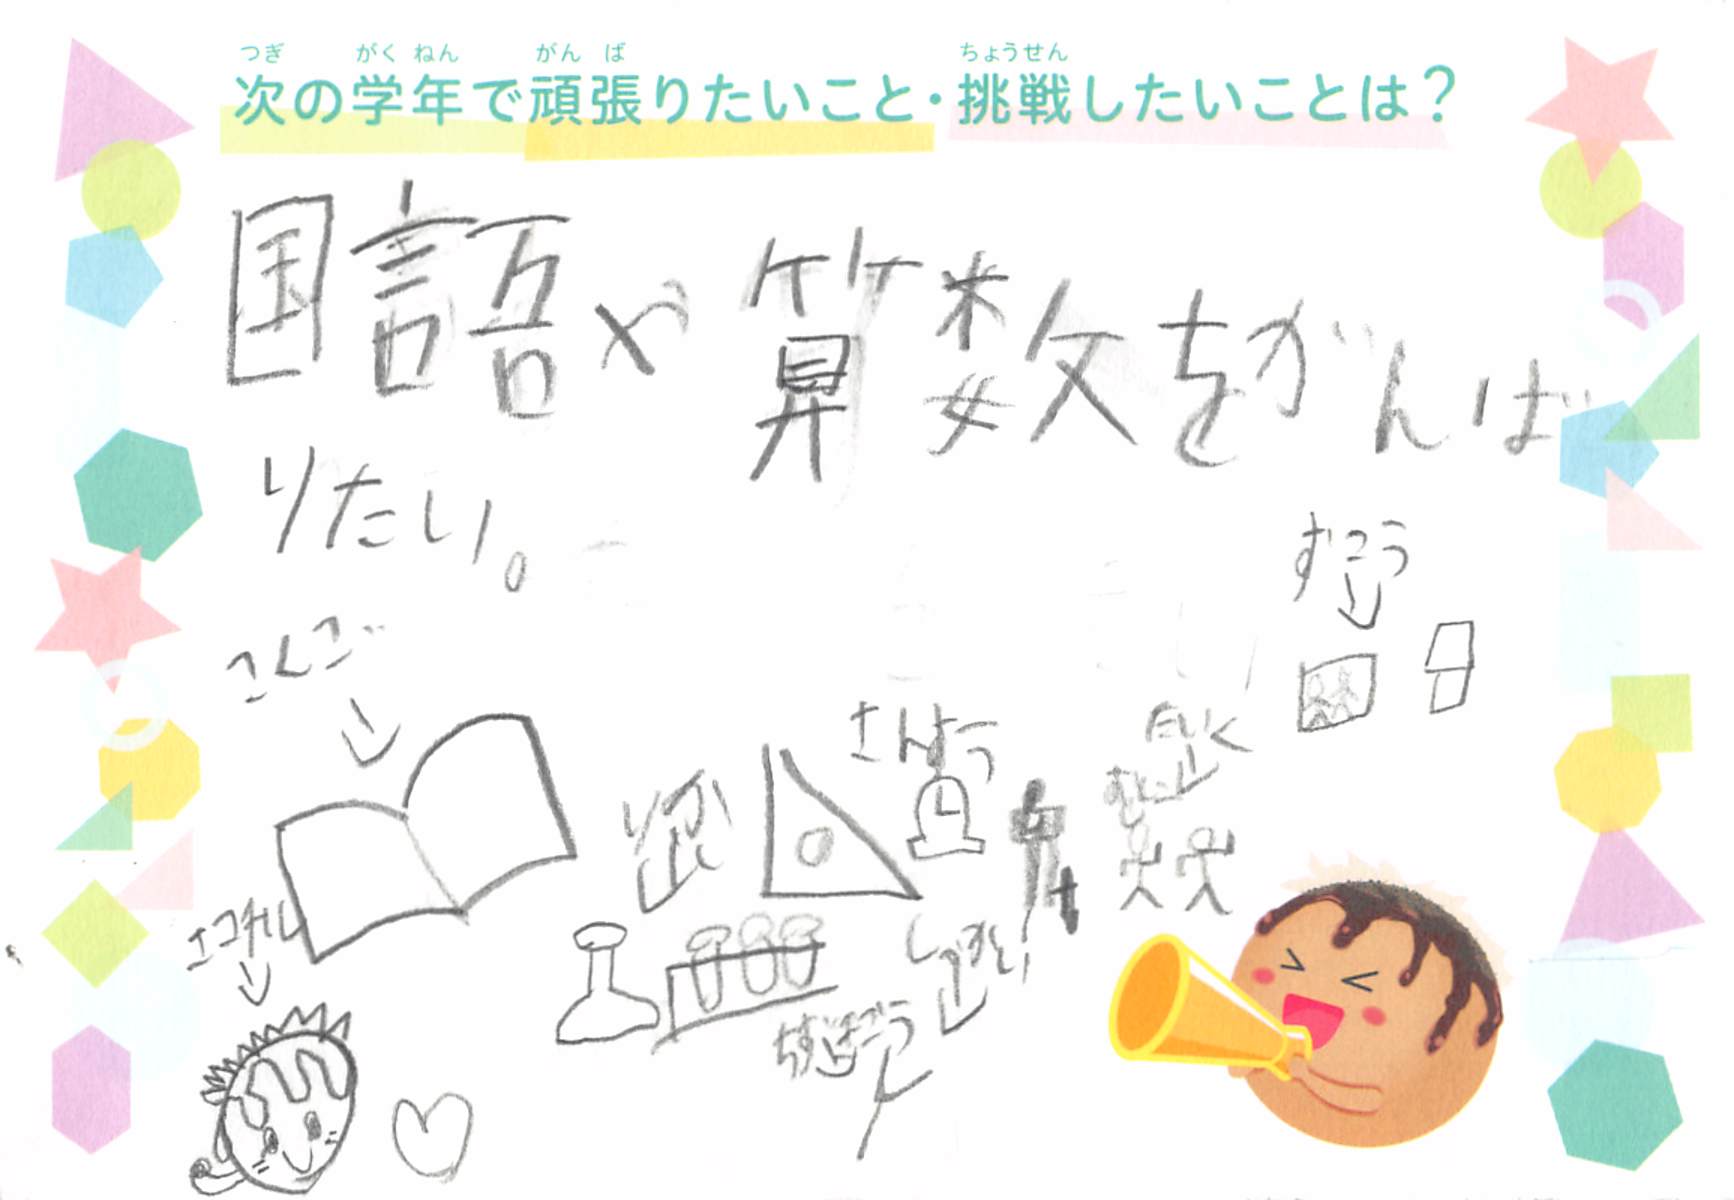 つぎ がくねん がんば ちょうせん
次の学年で頑張りたいこと・挑戦したいことは？
国語や算数をがんば
りたい。
ずこう
こくご
さんすう
たいいく
りか
エコチル
しゃかい